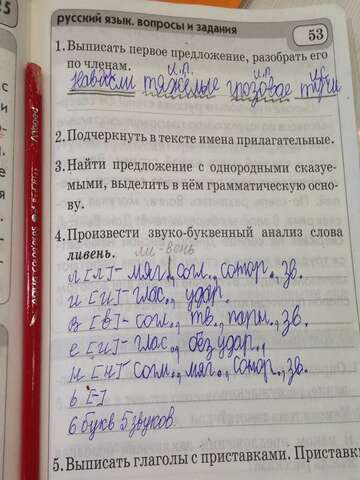 русский язык. вопросы и задания
53
1. Выписать первое предложение, разобрать его
по членам.
и.п. и.п.
тяжёлые грозовое тучи
2. Подчеркнуть в тексте имена прилагательные.
3. Найти предложение с однородными сказуе-
мыми, выделить в нём грамматическую осно-
ву.
4. Произвести звуко-буквенный анализ слова
ливень. ли-вень
л [л]- мяг., согл., сонор., зв.
и [и]-глас., удар.
в [в]- согл., тв., парн., зв.
е [и]-глас., без удар.,
н [н] согл., мяг., сонор., зв.
ь [-]
6 букв 5 звуков
5. Выписать глаголы с приставками. Пристав